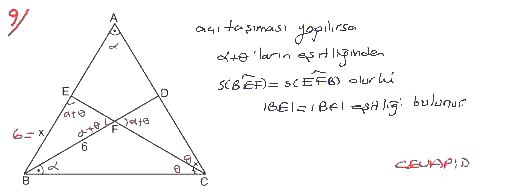 9/
A
α
açı taşıması yapılırsa
α+θ 'ların eşitliğinden
E
D
s(BEF) = s(EFB) olur ki
α+θ
α+θ
α+θ
F
|BE| = |BF| eşitliği bulunur
6 = x
6
θ
θ
α
B
C
CEVAP: D